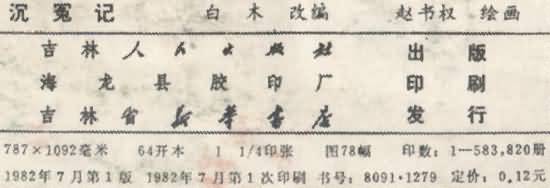 沉冤记 白木 改编 赵书权 绘画
吉林人民出版社 出版
海龙县胶印厂 印刷
吉林省新华书店 发行
787×1092毫米 64开本 1 1/4印张 图78幅 印数：1—583,820册
1982年7月第1版 1982年7月第1次印刷 书号：8091·1279 定价：0.12元